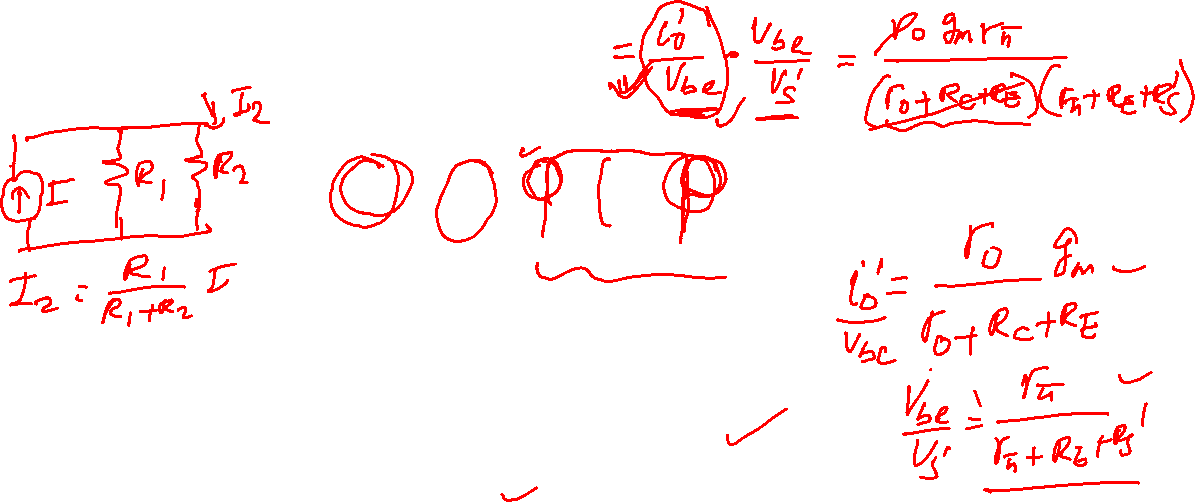 = i₀' / V_be · V_be / V_s' = r₀ g_m r_π / (r₀ + R_C + R_E)(r_π + R_E + R_S')
I₂
I R₁ R₂
I₂ = R₁ / (R₁ + R₂) I
i₀' / V_be = r₀ / (r₀ + R_C + R_E) g_m
V_be / V_s' = r_π / (r_π + R_E + R_S')